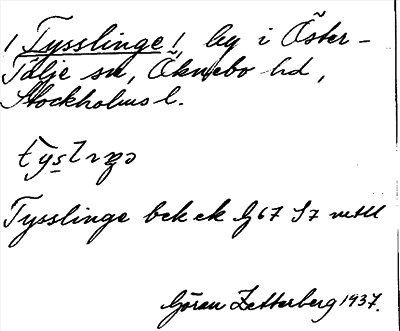 1 Tysslinge!, by i Öster-
Tälje sn, Öknebo hd,
Stockholms l.
Tysslinge bek ek G67 S7
Göran Zetterberg 1937.